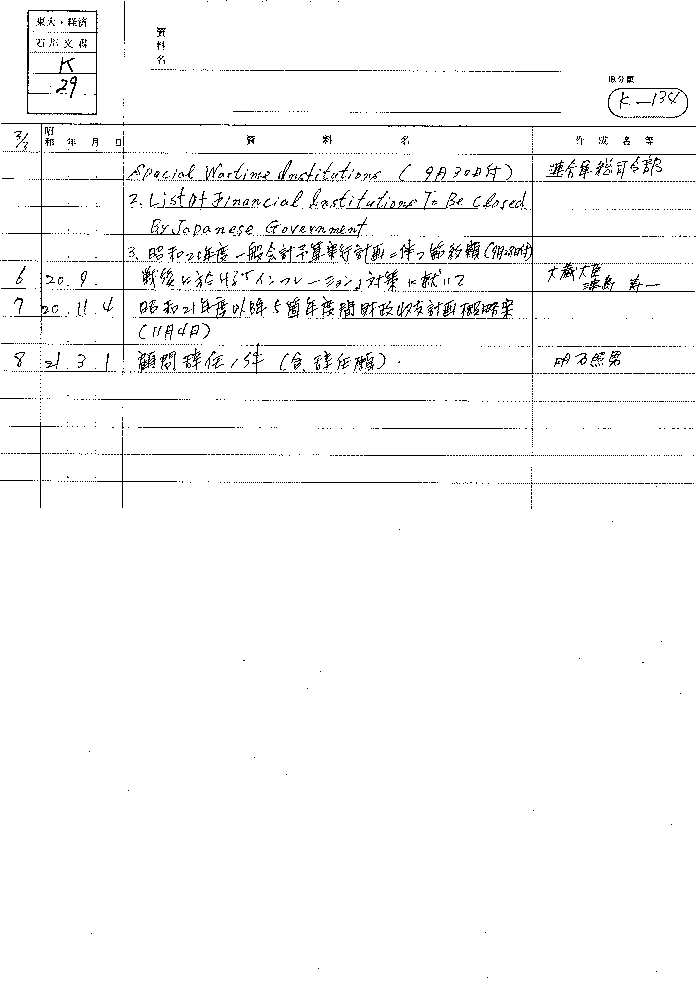 東大・経済
石川文書
K
29
資料名
旧分類
K-134
3/2 昭和 年 月 日 資料名 作成名等
Special Wartime Institutions (9月30日付) 連合軍総司令部
2. List of Financial Institutions To Be Closed
By Japanese Government
3. 昭和20年度一般会計予算実行計画ニ伴フ節約額(9月28日付)
6 20. 9. 戦後に於ける「インフレーション」対策に就いて 大蔵大臣 津島寿一
7 20. 11. 4 昭和21年度以降5箇年度間財政収支計画概略案
(11月4日)
8 21. 3. 1 顧問辞任ノ件 (含、辞任願). 明石照男